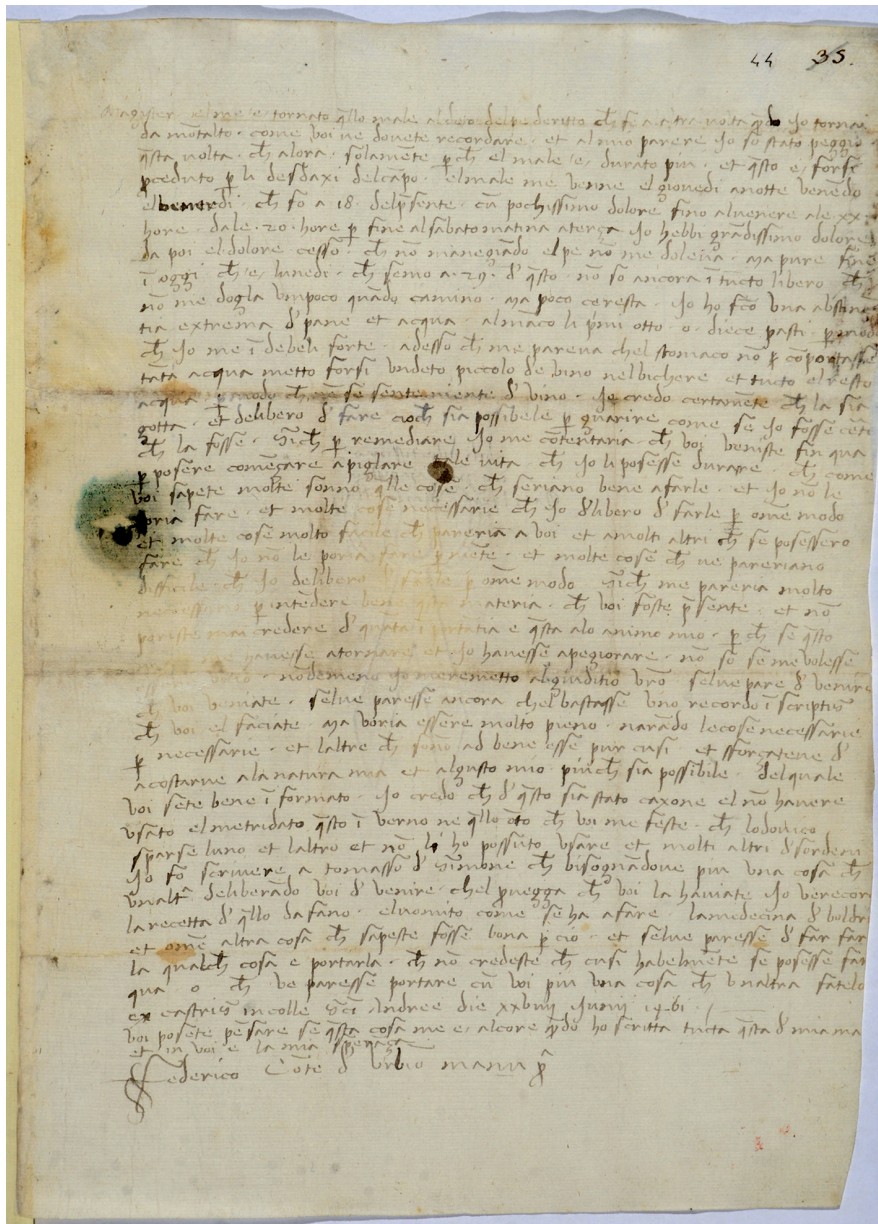 44 35.
Magister el me e tornato q̄llo male al deto del pe deritto ch̄ fe a altra volta q̄ndo Jo tornai
da mōtalto. come voi ve dovete recordare. et al mio parere Jo so stato peggio
q̄sta volta. ch̄ alora. solamēte p̄ ch̄ el male /e/ durato piu. et q̄sto e/ forsi
p̄ceduto p̄ li desdaxi del capo. el male me venne el giovedi anotte venēdo
el venerdi. ch̄ fo a 18. del p̄sente. cū pochissimo dolore fino al venere ale xx
hore. dale. 20. hore p̄ fine al sabato matina a terça Jo hebbi grādissimo dolore
da poi el dolore cesso. ch̄ nō manegiādo el pe nō me doleva. Ma pure fine
ī oggi ch̄ /e/ lunedi. ch̄ semo a. 29. d' q̄sto. nō so ancora ī tucto libero ch̄
nō me dogla vn poco quādo camino. Ma poco ce resta. Jo ho fc̄o vna abstinē
tia extrema d' pane et acqua. almāco li p̄mi otto. o. diece pasti. p̄ modo
ch̄ Jo me ī debeli forte. adesso ch̄ me pareva chel stomaco nō p̄ cōportasse
tāta acqua metto forsi vn deto piccolo de vino nel bichere et tucto el resto
acqua. modo ch̄ se sente niente d' vino. Jo credo certamēte ch̄ la sia
gotta. et delibero d' fare cioch̄ sia possibele p̄ guarire come se Jo fosse cēti
ch̄ la fosse. Sich̄ p̄ remediare Jo me cōtentaria. ch̄ voi veniste fin qua
p̄ posere comēçare a piglare tale vita. ch̄ Jo li posesse durare. ch̄ come
voi sapete molte sonno q̄lle cose ch̄ seriano bene a farle. et Jo nō le
poria fare. et molte cose necessarie ch̄ Jo d'libero d' farle p̄ ome modo
et molte cose molto facile ch̄ pareria a voi et a molti altri ch̄ se posessero
fare ch̄ Jo nō le poria fare p̄ niēte. et molte cose ch̄ ve pareriano
difficile ch̄ Jo delibero farle p̄ ome modo Sich̄ me pareria molto
necessario p̄ intēdere bene q̄sta materia. ch̄ voi foste p̄sente. et nō
poriste mai credere d' quāta īportātia e q̄sta alo animo mio. p̄ ch̄ se q̄sto
havesse a tornare et Jo havesse a pegiorare. nō so se me volesse
nōdemeno Jo me remetto al giuditio vr̄o selve pare d' venire
ch̄ voi veniate. selve paresse ancora chel bastasse vno recordo ī scriptis
ch̄ voi el faciate. Ma voria essere molto pieno. narādo le cose necessarie
p̄ necessarie. et laltre ch̄ sono ad bene esse pur cusi et sforçateve d'
acostarve ala natura mia et al gusto mio piu ch̄ sia possibile. del quale
voi sete bene ī formato. Jo credo ch̄ d' q̄sto sia stato caxone el nō havere
vsato el metridato q̄sto ī verno ne q̄llo oto ch̄ voi me feste. ch̄ lodovico
sparse luno et laltro et nō li ho possuto vsare et molti altri d'sordeni
Jo fo scrivere a tomasso d' Simone ch̄ bisognādove piu vna cosa ch̄
vnaltra deliberādo voi d' venire. chel p̄vegga ch̄ voi la haviate Jo ve recor
la recetta d' q̄llo da fano. el vomito come se ha a fare. la medecina d' boldr
et ome altra cosa ch̄ sapeste fosse bona p̄ cio. et selve paresse d' far far
la qualch̄ cosa e portarla. ch̄ nō credeste ch̄ cusi habelmēte se posesse far
qua o ch̄ ve paresse portare cū voi piu vna cosa ch̄ vnaltra fatelo
ex castris in colle Sc̄i Andree die xxviiij Junij 1461.
voi posete pēsare se q̄sta cosa me e/ al core q̄ndo ho scritta tucta q̄sta d' mia ma
et in voi e la mia sperāça
Federico Cōte d' Vrbino manu p̄